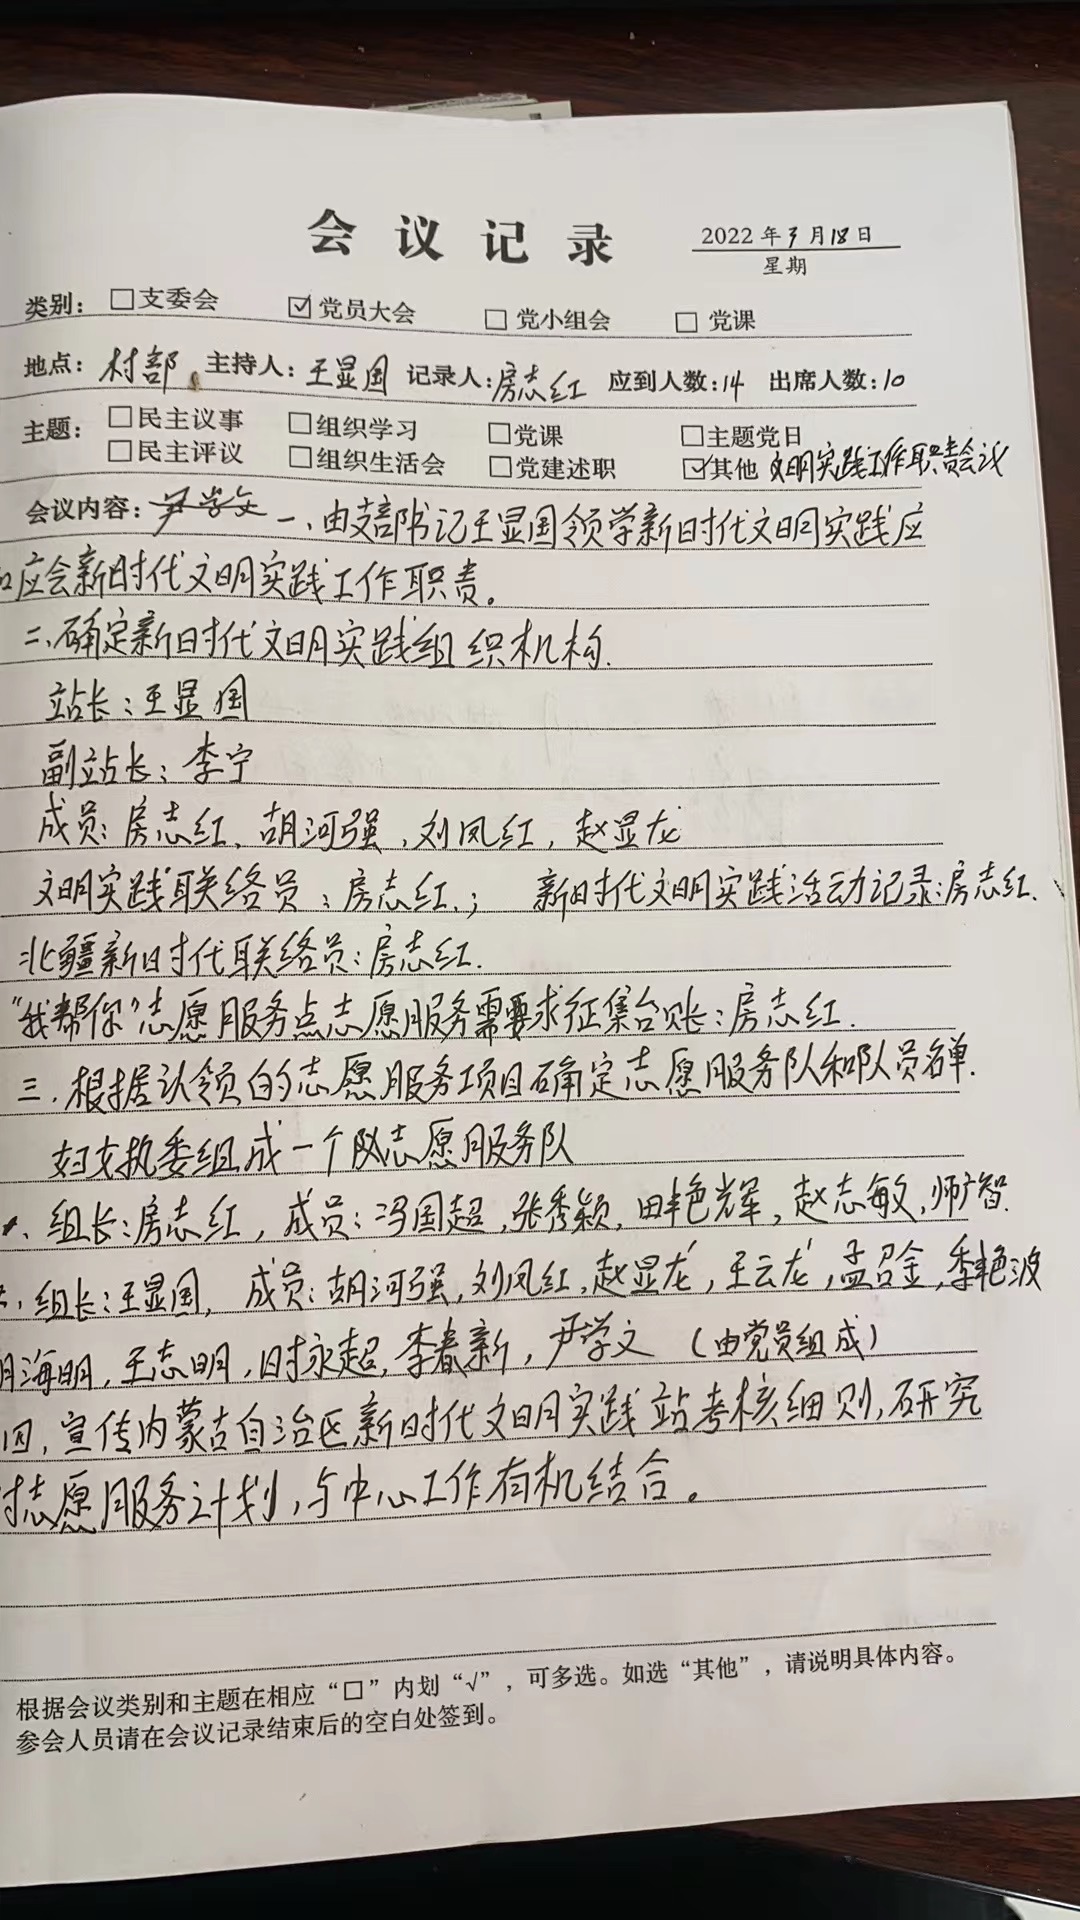 会议记录
2022年3月18日
星期
类别：□支委会 ☑党员大会 □党小组会 □党课
地点：村部 主持人：王显国 记录人：房志红 应到人数：14 出席人数：10
主题：□民主议事 □组织学习 □党课 □主题党日
□民主评议 □组织生活会 □党建述职 ☑其他 文明实践工作职责会议
会议内容：尹学文 一、由支部书记王显国领学新时代文明实践应
应会新时代文明实践工作职责。
二、确定新时代文明实践组织机构.
站长：王显国
副站长：李宁
成员：房志红、胡河强，刘凤红，赵显龙
文明实践联络员：房志红.； 新时代文明实践活动记录：房志红.、
北疆新时代联络员：房志红.
“我帮你”志愿服务点志愿服务需要求征集台账：房志红.
三.根据认领的志愿服务项目确定志愿服务队和队员名单.
妇女执委组成一个队志愿服务队
、组长：房志红，成员：冯国超，张秀颖，田艳辉，赵志敏，师广智.
、组长：王显国， 成员：胡河强，刘凤红，赵显龙，王云龙，孟召金，季艳波
海明，王志明，时永超，李春新，尹学文（由党员组成）
四，宣传内蒙古自治区新时代文明实践站考核细则，研究
讨志愿服务计划，与中心工作有机结合。
根据会议类别和主题在相应“□”内划“√”，可多选。如选“其他”，请说明具体内容。
参会人员请在会议记录结束后的空白处签到。